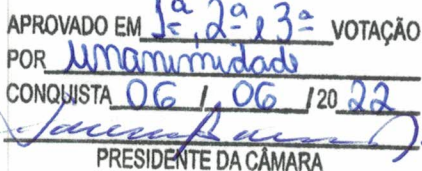 APROVADO EM 1ª, 2ª e 3ª VOTAÇÃO
POR unanimidade
CONQUISTA 06 / 06 / 20 22
PRESIDENTE DA CÂMARA